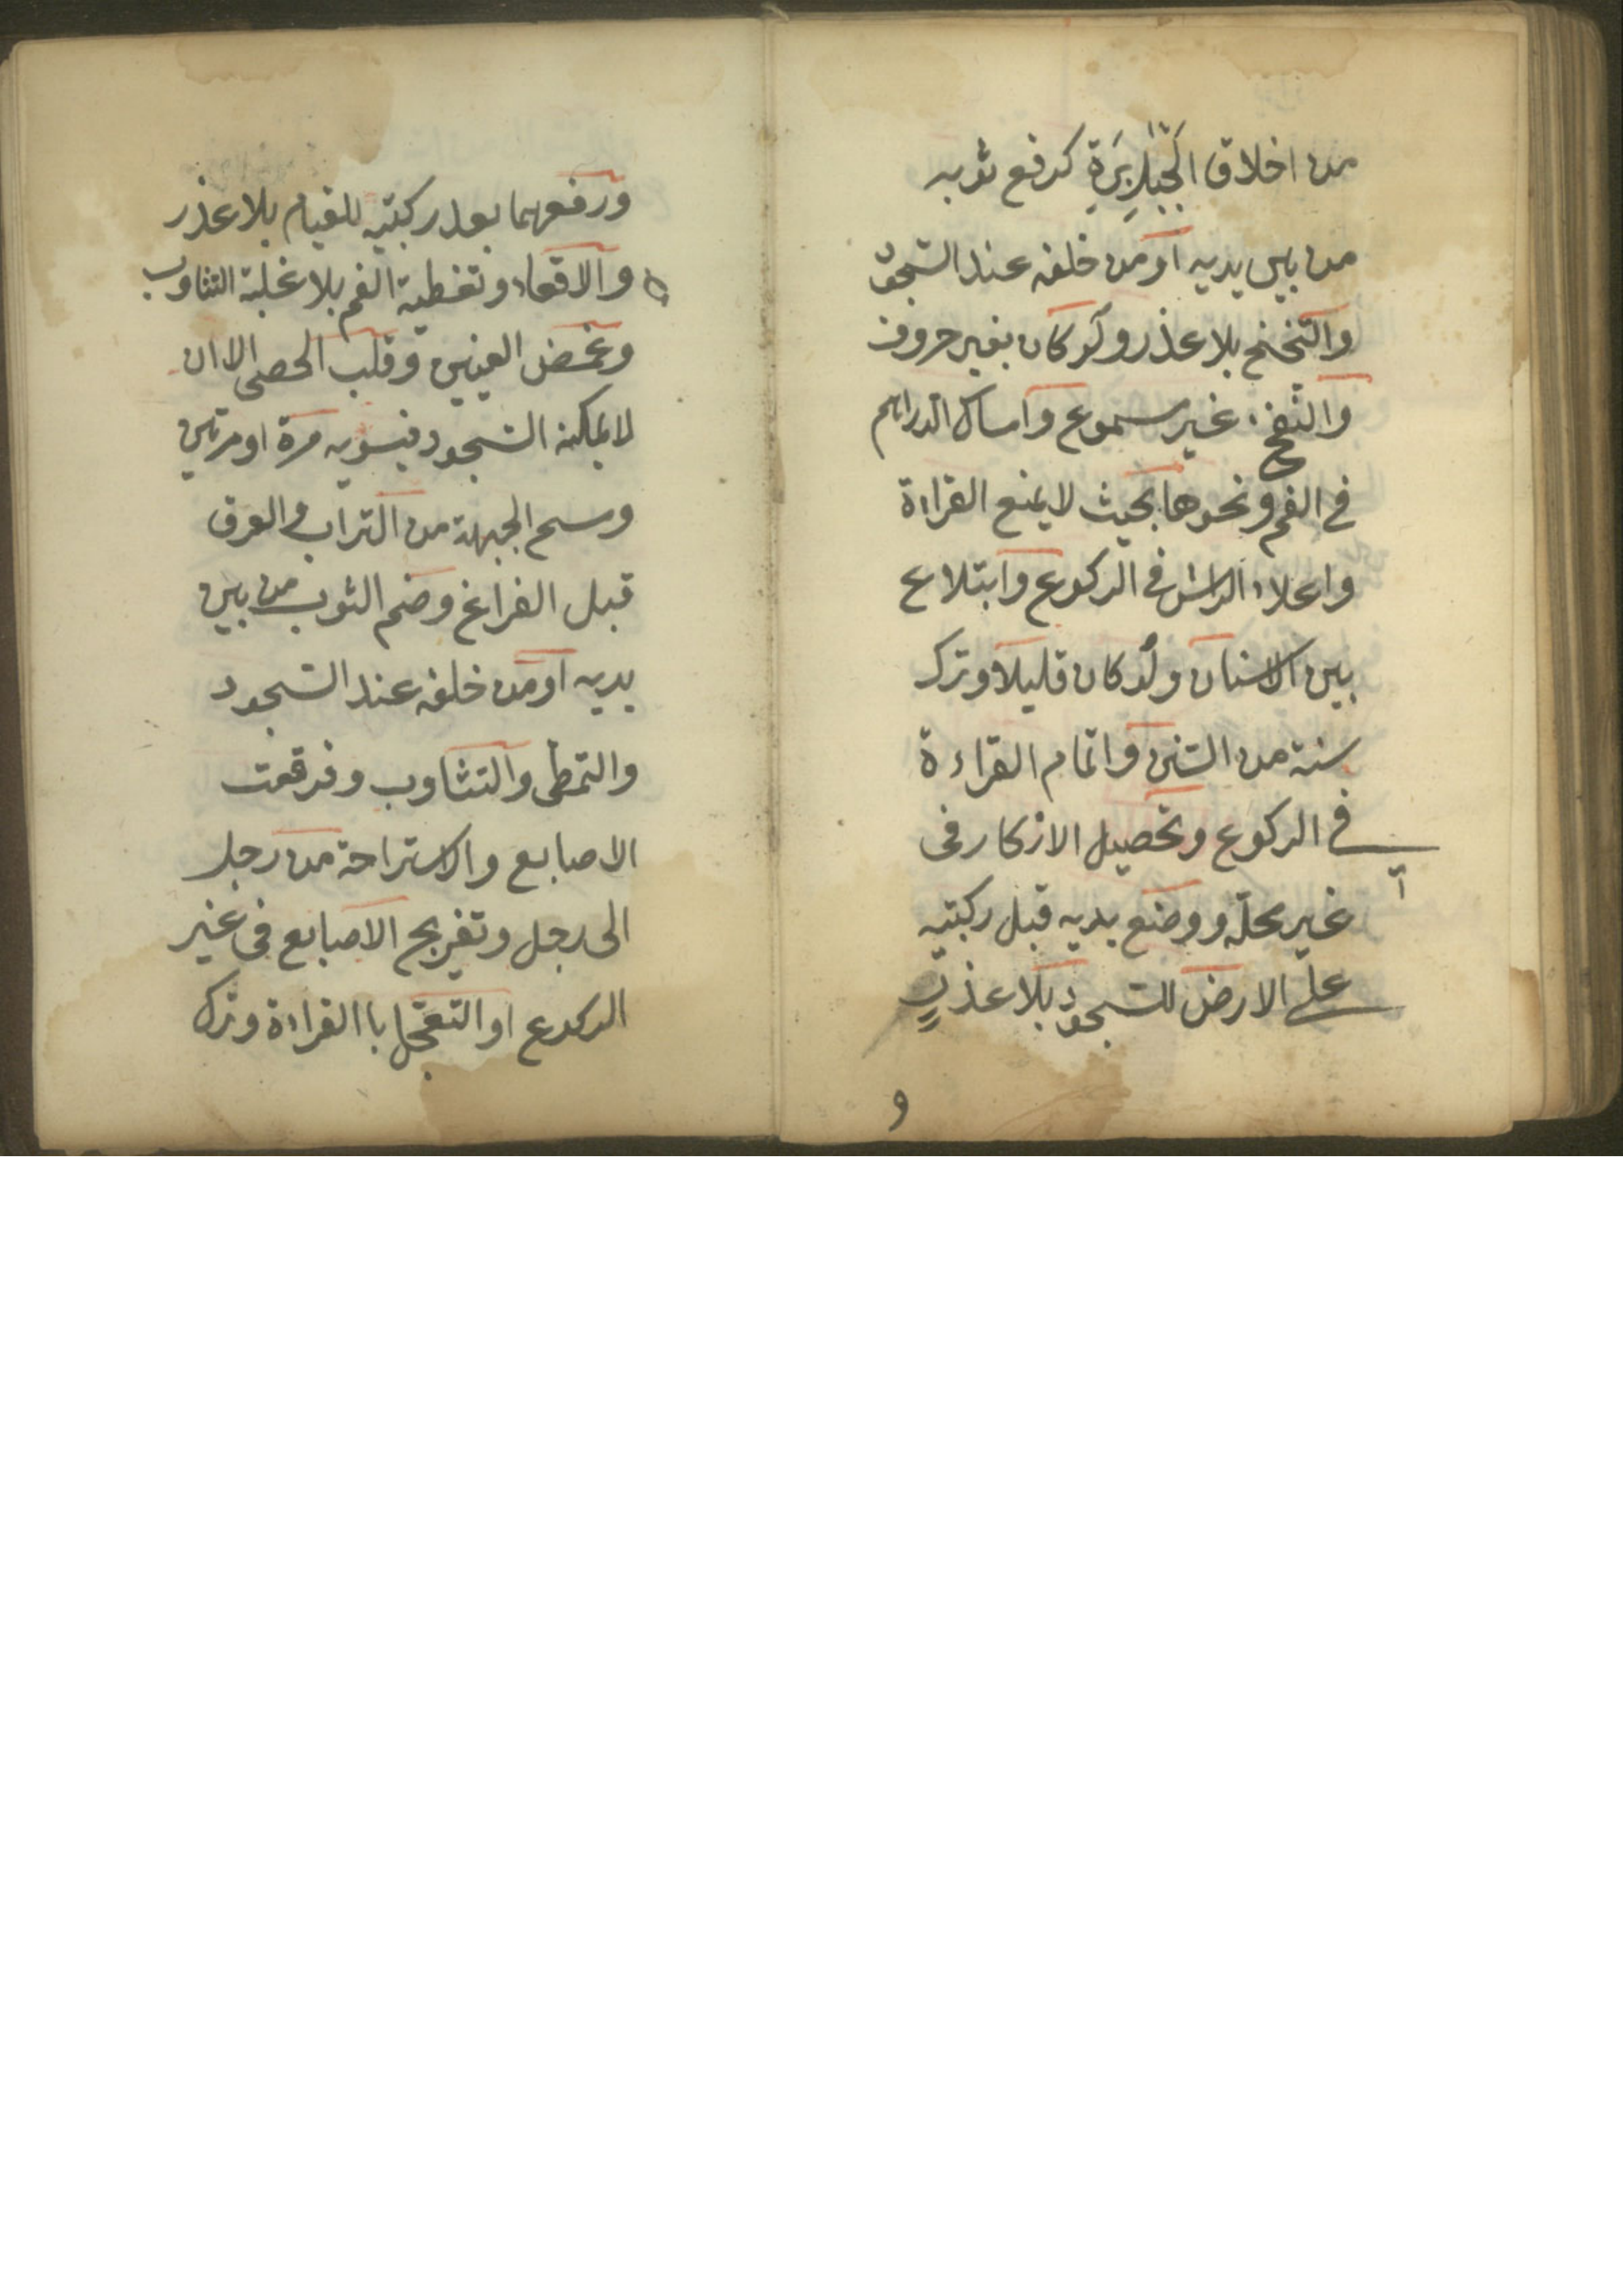 من اخلاق الجبابرة كرفع ثوبه
من بين يديه او من خلفه عند السجود
والتخنح بلا عذر ولو كان بغير حروف
والنفخ غير مسموع وامساك الدراهم
في الفم ونحوها بحيث لا يمنع القراءة
واعلاء الراس في الركوع وابتلاع
بين الاسنان ولو كان قليلا وترك
سنة من السنن واتمام القراءة
في الركوع وتحصيل الاذكار في
غير محله ووضع يديه قبل ركبتيه
على الارض للسجود بلا عذر
و
ورفعهما بعد ركبتيه للقيام بلا عذر
والاقعاء وتغطية الفم بلا غلبة التثاوب
وغمض العينين وقلب الحصى الا ان
لا يمكنه السجود فيسويه مرة او مرتين
ومسح الجبهة من التراب والعرق
قبل الفراغ وضم الثوب من بين
يديه او من خلفه عند السجود
والتمطى والتثاوب وفرقعت
الاصابع والاستراحة من رجل
الى رجل وتفريج الاصابع في غير
الركوع او التعجل باالقراءة وترك